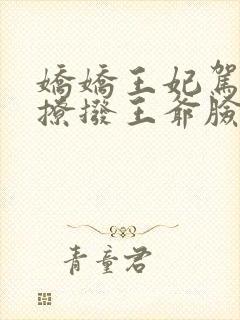 嬌嬌王妃駕
撩撥王爺臉
青童君